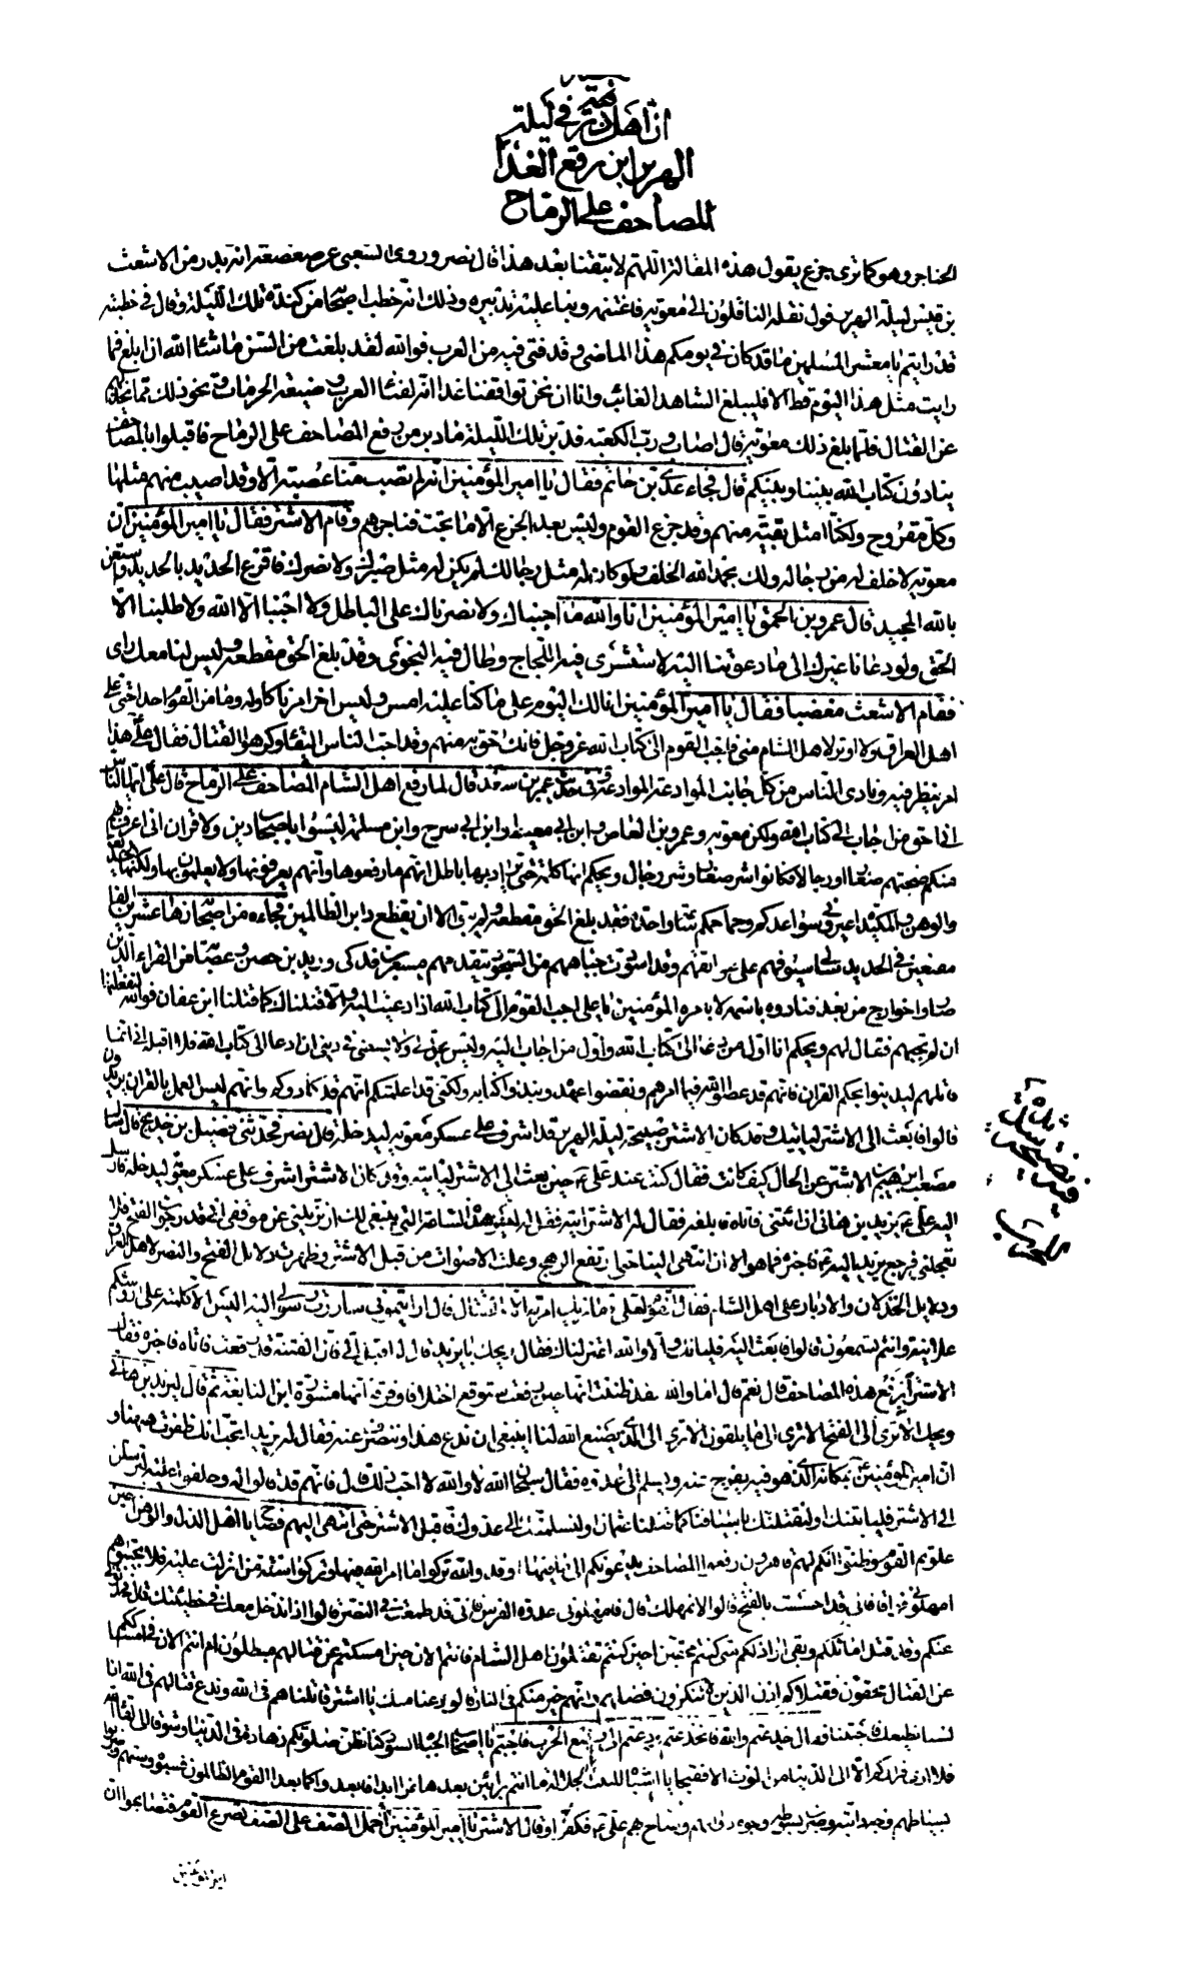 ان اهل في ليلة
الهرير ابن رفع الغدا
المصاحف على الرماح
الخناجر وهو كما ترى جزع يقول هذه المقالة اللهم لا تبقنا بعد هذا قال نصر وروى الشعبي عن صعصعة انه بدر من الاشعث
بن قيس ليلة الهرير قول نقله الناقلون الى معوية فاغتنمه وبنا عليه تدبيره وذلك انه خطب اصحابه من كندة تلك الليلة وقال في خطبته
قد رايتم يا معشر المسلمين ما قد كان في يومكم هذا الماضي وقد فني فيه من العرب فوالله لقد بلغت من السن ما شاء الله ان ابلغ فما
رايت مثل هذا اليوم قط الا فليبلغ الشاهد الغائب وانا ان نحن تواقفنا غدا انه لفناء العرب وضيعة الحرمات ونحو ذلك مما
عن القتال فلما بلغ ذلك معوية قال اصاب ورب الكعبة فدبر تلك الليلة ما دبر من رفع المصاحف على الرماح فاقبلوا بالمصاحف
ينادون كتاب الله بيننا وبينكم قال فجاء عدي بن حاتم فقال يا امير المؤمنين انه لم تصب منا عصبة الا وقد اصيب منهم مثلها
وكل مقروح ولكنا امثل بقية منهم وقد جزع القوم وليس بعد الجزع الا ما تحب فناجزهم وقام الاشتر فقال يا امير المؤمنين ان
معوية لا خلف له من رجاله ولك بحمد الله الخلف ولو كان له مثل رجالك لم يكن له مثل صبرك ولا نصرك فاقرع الحديد بالحديد واستعن
بالله المجيد قال عمرو بن الحمق يا امير المؤمنين انا والله ما اجبناك ولا نصرناك على الباطل ولا اجبنا الا الله ولا طلبنا الا
الحق ولو دعانا غيرك الى ما دعوتنا اليه لاستشرى فيه اللجاج وطال فيه النجوى وقد بلغ الحق مقطعه وليس لنا معك راى
فقام الاشعث مغضبا فقال يا امير المؤمنين انا لك اليوم على ما كنا عليه امس وليس اخر امرنا كاوله وما من القوم احد احنى على
اهل العراق ولا اوتر لاهل الشام منى فاجب القوم الى كتاب الله عز وجل فانك احق به منهم وقد احب الناس البقاء وكرهوا القتال فقال على هذا
امر ينظر فيه ونادى الناس من كل جانب الموادعة الموادعة وفى حديث عمر بن سعد قال لما رفع اهل الشام المصاحف على الرماح قال على ايها الناس
انى احق من اجاب الى كتاب الله ولكن معوية وعمرو بن العاص وابن ابى معيط وابن ابى سرح وابن مسلمة ليسوا باصحاب دين ولا قران انى اعرف بهم
منكم صحبتهم صغارا ورجالا فكانوا شر صغار وشر رجال ويحكم انها كلمة حق يراد بها باطل انهم ما رفعوها وانهم يعرفونها ولا يعلمون بها ولكنها الخديعة
والوهن والمكيدة اعيرونى سواعدكم وجماجمكم ساعة واحدة فقد بلغ الحق مقطعه ولم يبق الا ان يقطع دابر الظالمين فجاءه من اصحابه زهاء عشرين الفا
مقنعين في الحديد شاكي سيوفهم على عواتقهم وقد اسودت جباههم من السجود يتقدمهم مسعر بن فدكي وزيد بن حصين وعصابة من القراء الذين
صاروا خوارج من بعد فنادوه باسمه لا بامرة المؤمنين يا على اجب القوم الى كتاب الله اذا دعيت اليه والا قتلناك كما قتلنا ابن عفان فوالله لنفعلنها
ان لم تجبهم فقال لهم ويحكم انا اول من دعا الى كتاب الله واول من اجاب اليه وليس يحل لي ولا يسعني في ديني ان ادعا الى كتاب الله فلا اقبله انى انما
قاتلهم ليدينوا بحكم القران فانهم قد عصوا الله فيما امرهم ونقضوا عهده ونبذوا كتابه ولكنى قد اعلمتكم انهم قد كادوكم وانهم ليس العمل بالقران يريدون
قالوا فابعث الى الاشتر لياتيك وقد كان الاشتر صبيحة ليلة الهرير قد اشرف على عسكر معوية ليدخله قال نصر فحدثنى فضيل بن خديج قال سال
مصعب ابرهيم بن الاشتر عن الحال كيف كانت فقال كنت عند على ع حين بعث الى الاشتر لياتيه وقد كان الاشتر اشرف على عسكر معوية ليدخله فارسل
اليه على ع يزيد بن هانى ان ائتنى فاتاه فابلغه فقال له الاشتر ائته فقل له ليس هذه الساعة التي ينبغي لك ان تزيلني عن موقفي انى قد رجوت الفتح فلا
تعجلنى فرجع يزيد اليه ع فاخبره فما هو الا ان انتهى الينا حتى ارتفع الرهج وعلت الاصوات من قبل الاشتر وظهرت دلائل الفتح والنصر لاهل العراق
ودلايل الخذلان والادبار على اهل الشام فقال القوم لعلى ع ما نراك امرته الا بالقتال قال ارايتمونى ساررت رسولى اليه اليس انما كلمته على رؤسكم
علانية وانتم تسمعون قالوا فابعث اليه فلياتك والا والله اعتزلناك فقال ويحك يا يزيد قل له اقبل الى فان الفتنة قد وقعت فاتاه فاخبره فقال
الاشتر ابرفع هذه المصاحف قال نعم قال اما والله لقد ظننت انها حين رفعت ستوقع اختلافا وفرقة انها مشورة ابن النابغة ثم قال ليزيد بن هانى
ويحك الا ترى الى الفتح الا ترى الى ما يلقون الا ترى الى الذى يصنع الله لنا اينبغى ان ندع هذا وننصرف عنه فقال له يزيد اتحب انك ظفرت ههنا و
ان امير المؤمنين ع بمكانه الذي هو فيه يفرج عنه ويسلم الى عدوه فقال سبحان الله لا والله لا احب ذلك قال فانهم قد قالوا له وحلفوا عليه لترسلن
الى الاشتر فلياتينك او لنقتلنك باسيافنا كما قتلنا عثمان او لنسلمنك الى عدوك فاقبل الاشتر حتى انتهى اليهم فصاح يا اهل الذل والوهن احين
علوتم القوم وظنوا انكم لهم قاهرون رفعوا المصاحف يدعونكم الى ما فيها وقد والله تركوا ما امر الله به فيها وتركوا سنة من انزلت عليه فلا تجيبوهم
امهلونى فواقا فانى قد احسست بالفتح قالوا لا نمهلك قال فامهلونى عدوة الفرس فانى قد طمعت فى النصر قالوا اذا ندخل معك فى خطيئتك قال فحدثونى
عنكم وقد قتل اماثلكم وبقى اراذلكم متى كنتم محقين احين كنتم تقتلون اهل الشام فانتم الان حين امسكتم عن قتالهم مبطلون ام انتم الان في امساككم
عن القتال محقون فقتلاكم اذن الذين لا تنكرون فضلهم وانهم خير منكم فى النار قالوا دعنا منك يا اشتر قاتلناهم فى الله وندع قتالهم فى الله انا
لسنا نطيعك فاجتنبنا فقال خدعتم والله فانخدعتم ودعيتم الى وضع الحرب فاجبتم يا اصحاب الجباه السود كنا نظن صلوتكم زهادة فى الدنيا وشوقا الى لقاء الله
فلا ارى فراركم الا الى الدنيا من الموت الا فقبحا يا اشباه النيب الجلالة ما انتم برائين بعدها عزا ابدا فابعدوا كما بعد القوم الظالمون فسبوه وسبهم وضربوا
بسياطهم وجه دابته وضرب بسوطه وجوه دوابهم وصاح بهم على ع فكفوا وقال الاشتر يا امير المؤمنين احمل الصف على الصف يصرع القوم فتصايحوا ان